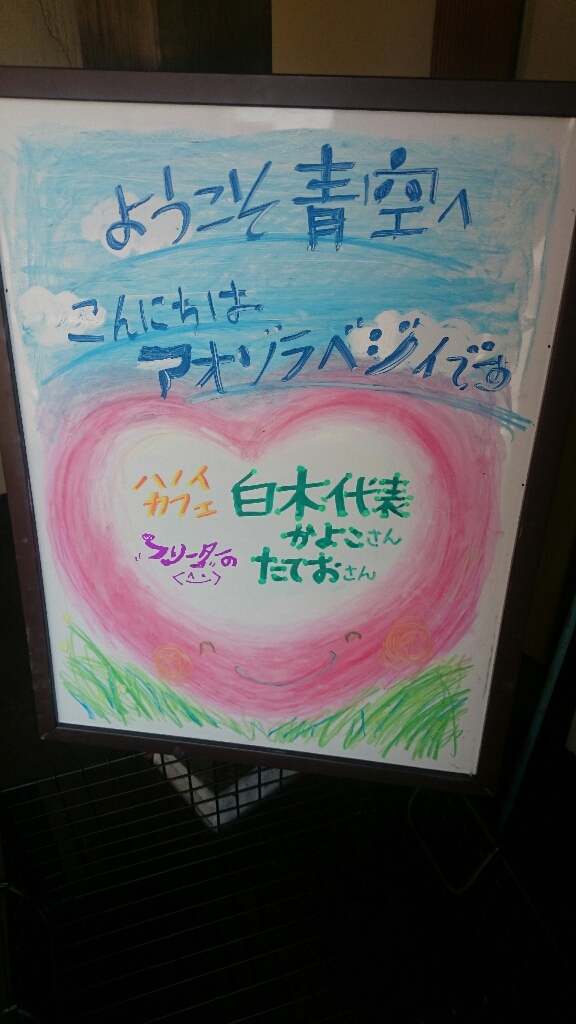 ようこそ青空へ
こんにちは
アオゾラベジィです
ハノイ
カフェ
白木代表
かよこさん
フリーダーの
たておさん